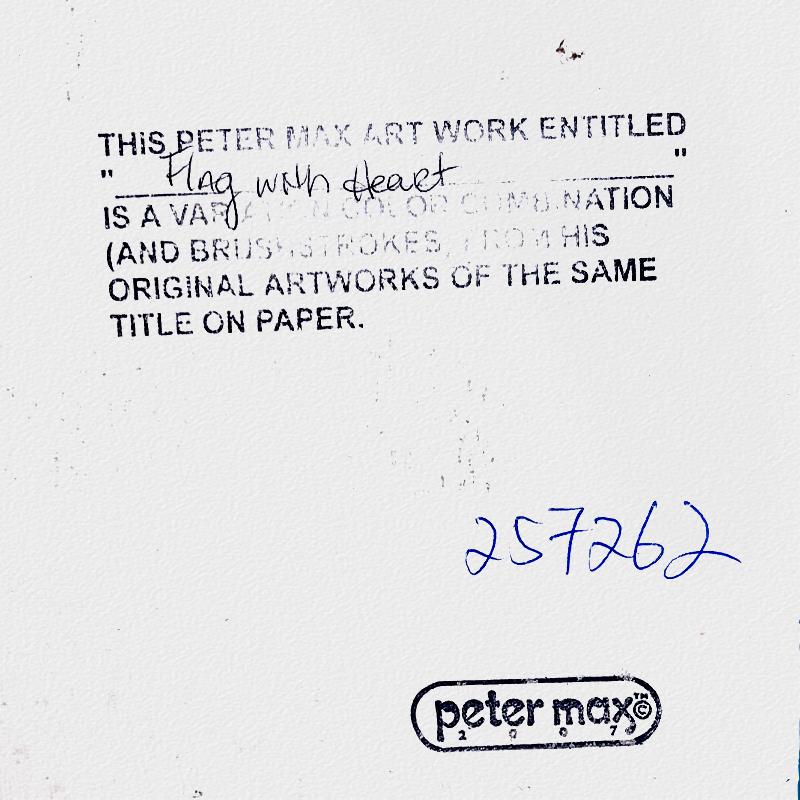 THIS PETER MAX ART WORK ENTITLED
" Flag with Heart "
IS A VARIATION COLOR COMBINATION
(AND BRUSHSTROKES) FROM HIS
ORIGINAL ARTWORKS OF THE SAME
TITLE ON PAPER.
257262
peter max™©
2007